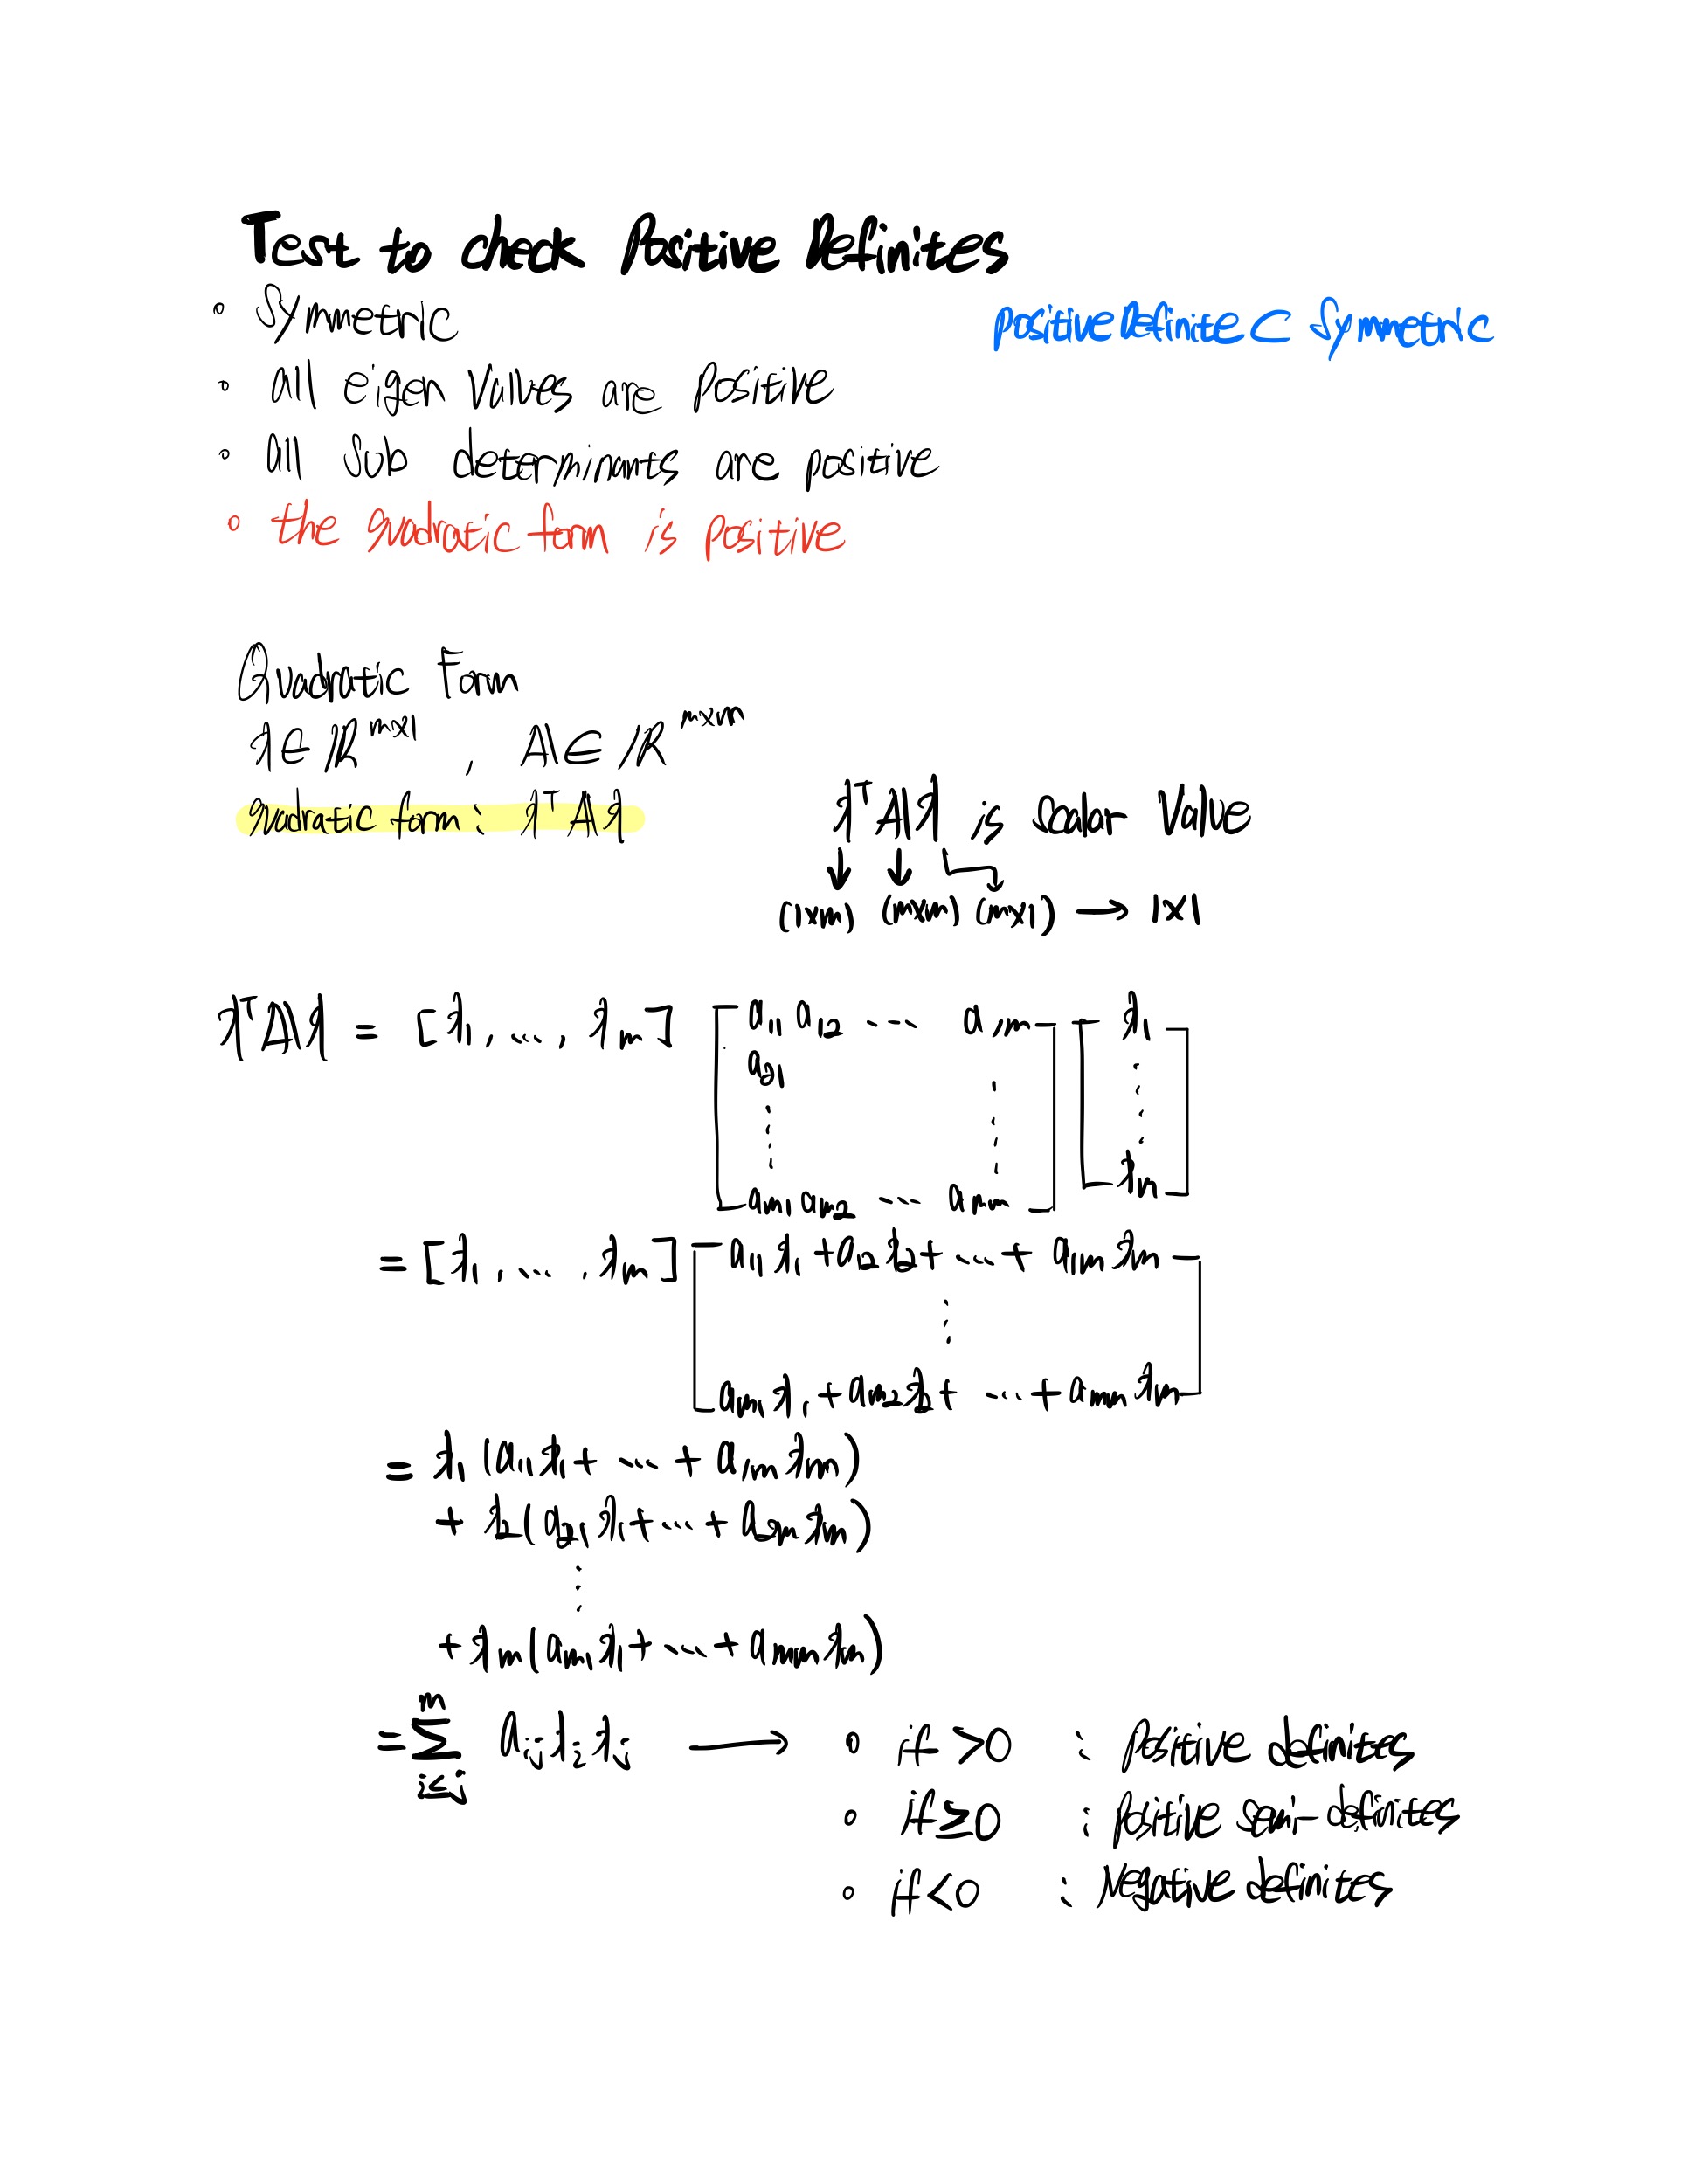 Test to check Positive Definites
◦ Symmetric
positive Definite ⊂ Symmetric
◦ all eigen values are positive
◦ all sub determinants are positive
◦ the quadratic form is positive
Quadratic Form
x ∈ ℝ^{m×1} , A ∈ ℝ^{m×m}
quadratic form : x^T A x
x^T A x is scalar value
↓ ↓ ↓
(1×m) (m×m) (m×1) → 1×1
x^T A x = [x₁, ..., x_m] [a₁₁ a₁₂ ... a₁m; a₂₁ ⋮ ⋮; a_m1 a_m2 ... a_mm] [x₁ ⋮ x_m]
= [x₁, ..., x_m] [a₁₁x₁ + a₁₂x₂ + ... + a₁m x_m
⋮
a_m1 x₁ + a_m2 x₂ + ... + a_mm x_m]
= x₁ (a₁₁x₁ + ... + a₁m x_m)
+ x₂ (a₂₁x₁ + ... + a₂m x_m)
⋮
+ x_m (a_m1 x₁ + ... + a_mm x_m)
= Σ_{i≤j}^{m} a_ij x_i x_j → ◦ if >0 : positive definites
◦ if ≥0 : positive semi-definites
◦ if <0 : Negative definites